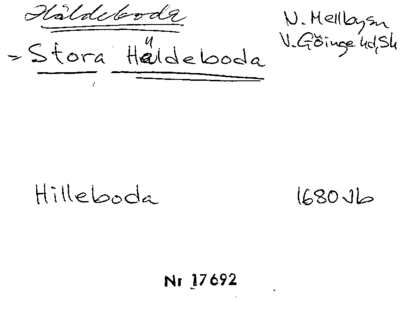 Häldeboda
N. Mellby sn
= Stora Häldeboda
V. Göinge hd, Sk
Hilleboda
1680 Jb
Nr 17692